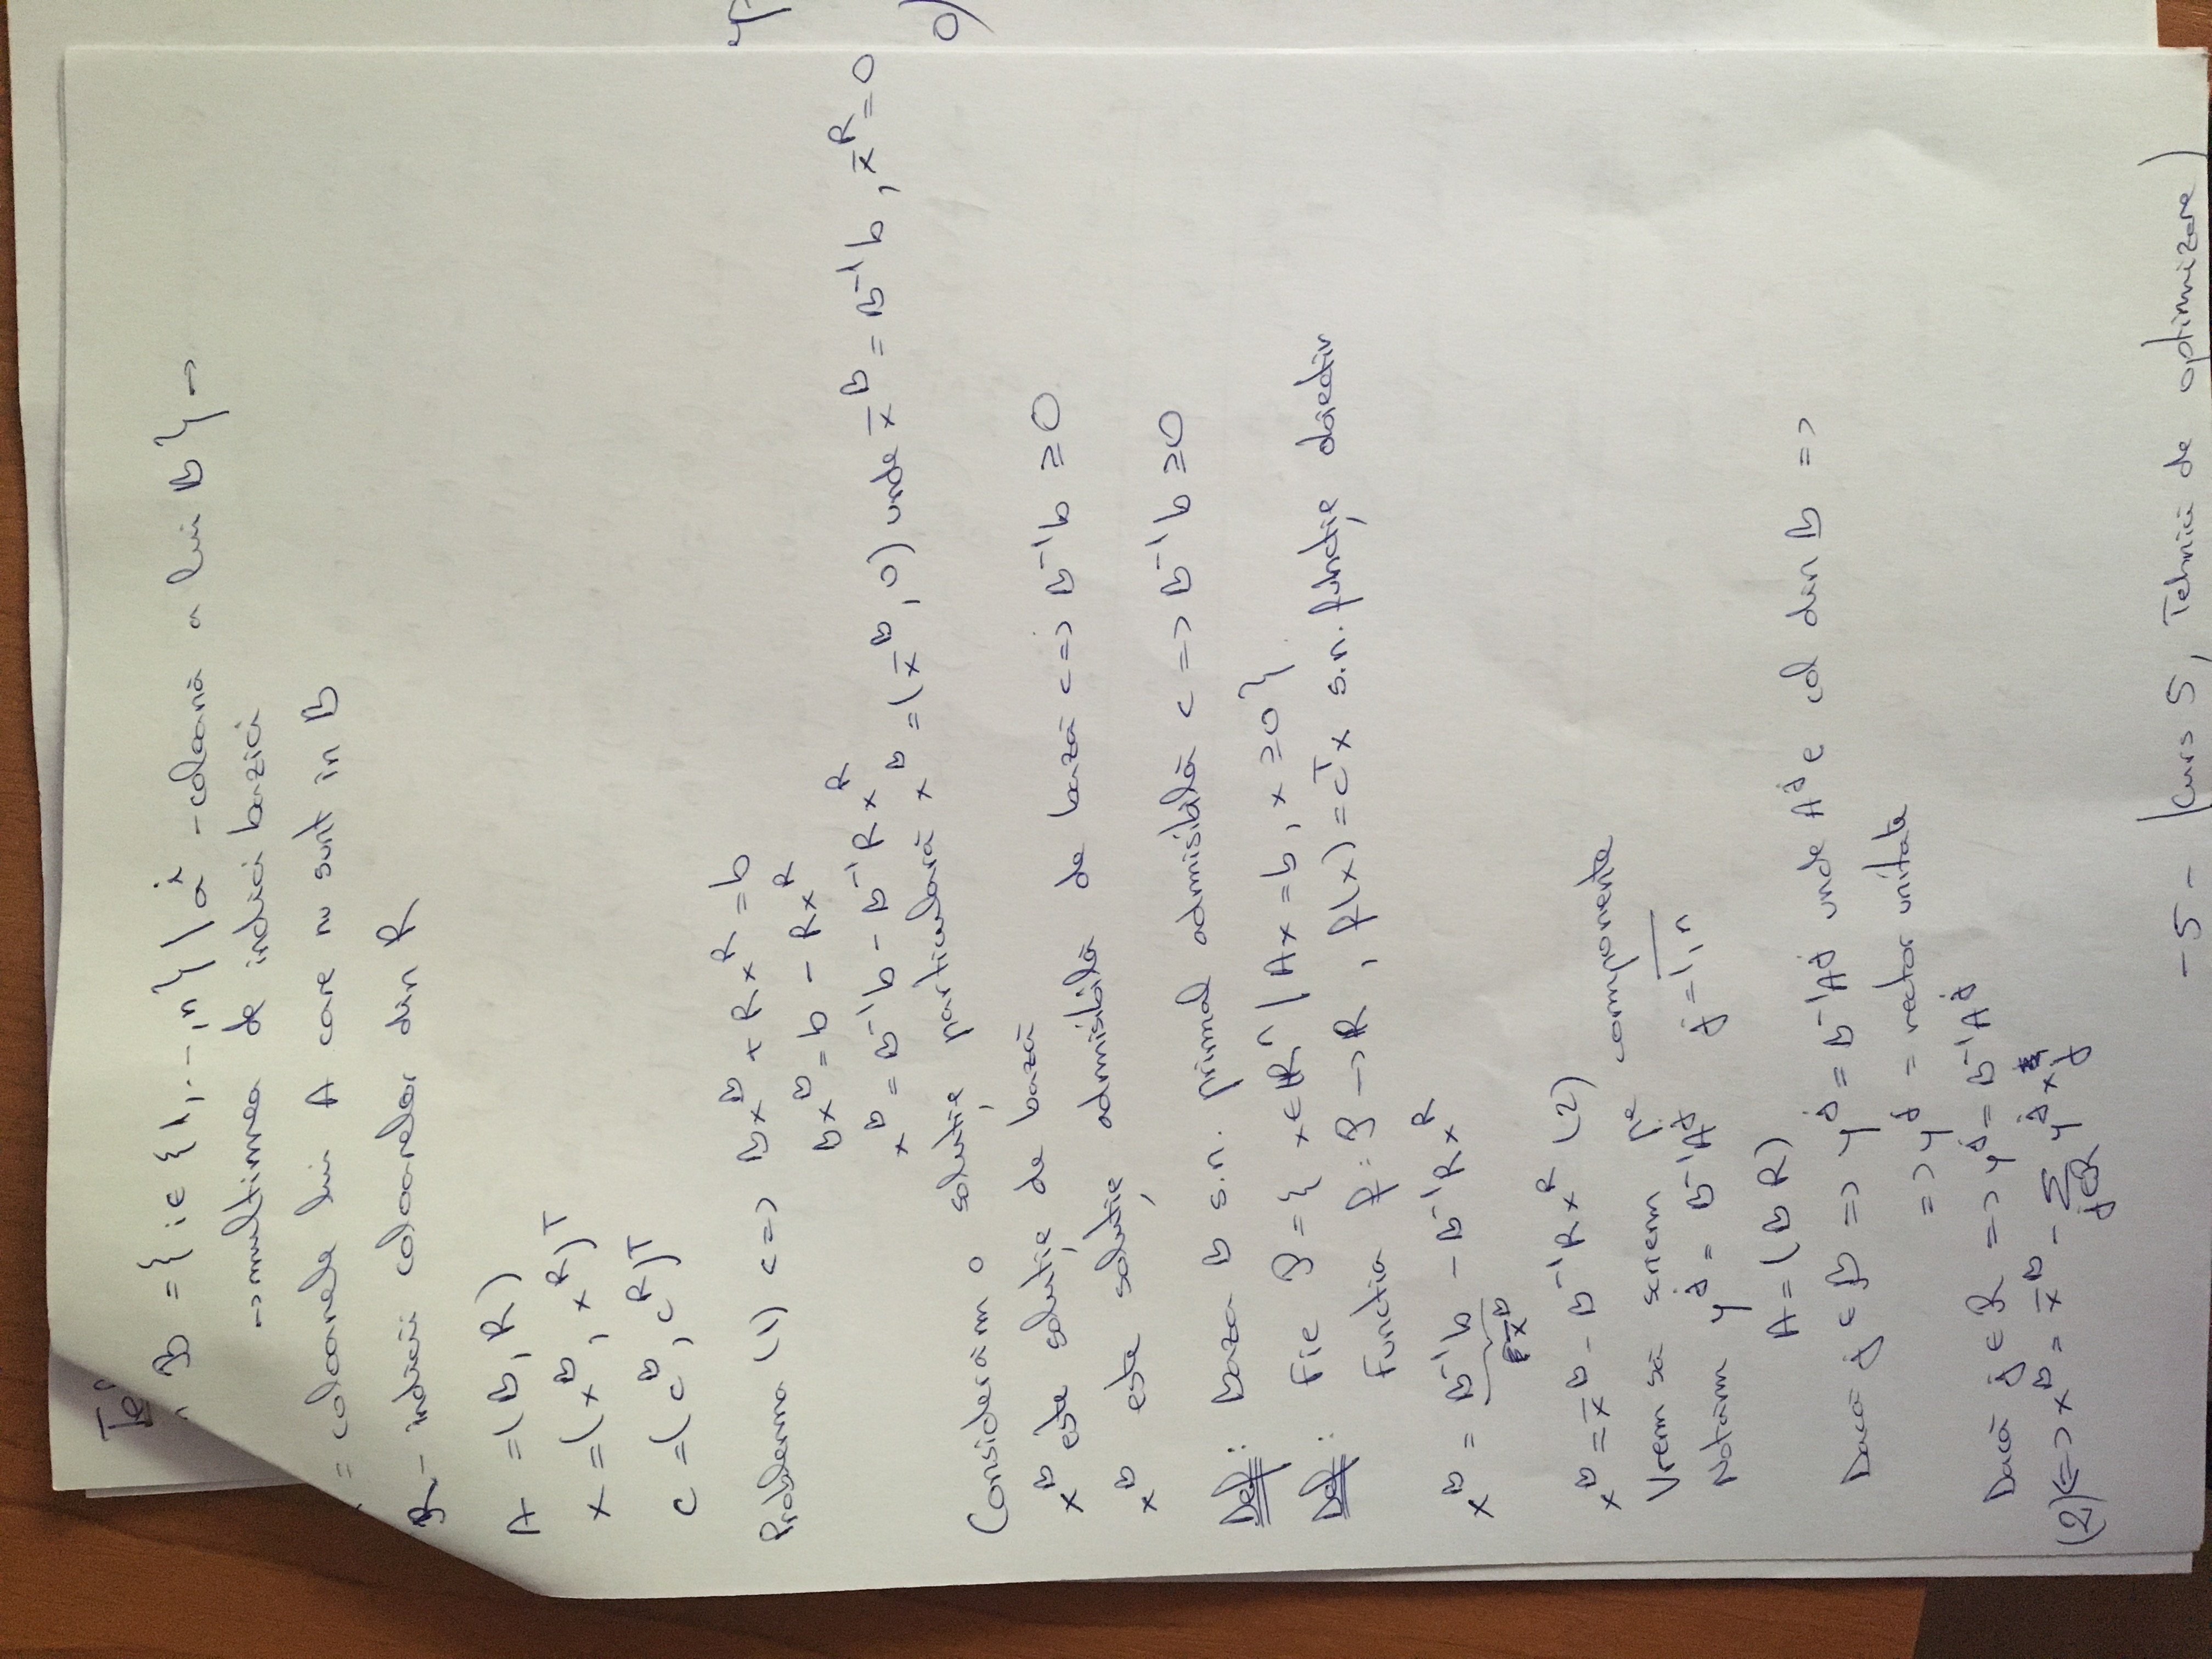 B = { i ∈ {1, ..., n} | a^i - coloană a lui B } →
→ mulțimea de indici bazici
= coloanele lui A care nu sunt in B
R - indicii coloanelor din R
A = (B, R)
x = (x^B, x^R)^T
c = (c^B, c^R)^T
Problema (1) <=> Bx^B + Rx^R = b
Bx^B = b - Rx^R
x^B = B^-1 b - B^-1 R x^R
Considerăm o soluție particulară x^B = (x̄^B, 0) unde x̄^B = B^-1 b, x̄^R = 0
x^B este soluție de bază
x^B este soluție admisibilă de bază <=> B^-1 b ≥ 0
Def: baza B s.n. primal admisibilă <=> B^-1 b ≥ 0
Def: Fie P = { x ∈ R^n | Ax = b, x ≥ 0 }
Funcția f: P → R, f(x) = c^T x s.n. funcție obiectiv
x^B = B^-1 b - B^-1 R x^R
x̄^B
x^B = x̄^B - B^-1 R x^R (2)
Vrem să scriem pe componente
Notăm y^j = B^-1 A^j j = 1, n
A = (B R)
Dacă j ∈ B => y^j = B^-1 A^j unde A^j e col din B =>
=> y^j = vector unitate
Dacă j ∈ R => y^j = B^-1 A^j
(2) <=> x^B = x̄^B - Σ j∈R y^j x_j
- 5 - (Curs 5, Tehnici de optimizare)